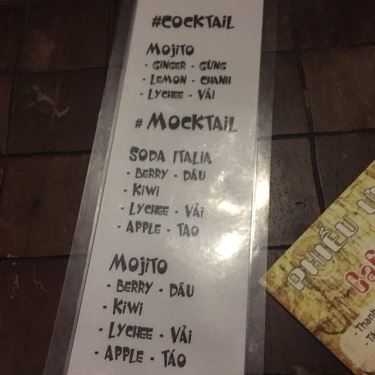 #COCKTAIL
MOJITO
- GINGER - GỪNG
- LEMON - CHANH
- LYCHEE - VẢI
# MOCKTAIL
SODA ITALIA
- BERRY - DÂU
- KIWI
- LYCHEE - VẢI
- APPLE - TÁO
MOJITO
- BERRY - DÂU
- KIWI
- LYCHEE - VẢI
- APPLE - TÁO
PHIẾU